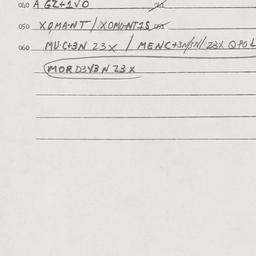 040 A GZ+1VO 041
050 XOMANT / XOMUNTIS 051
060 MU·C+3N Z3X / MENC+3N/1N/ Z3X QPOL
MORD3V3N Z3X